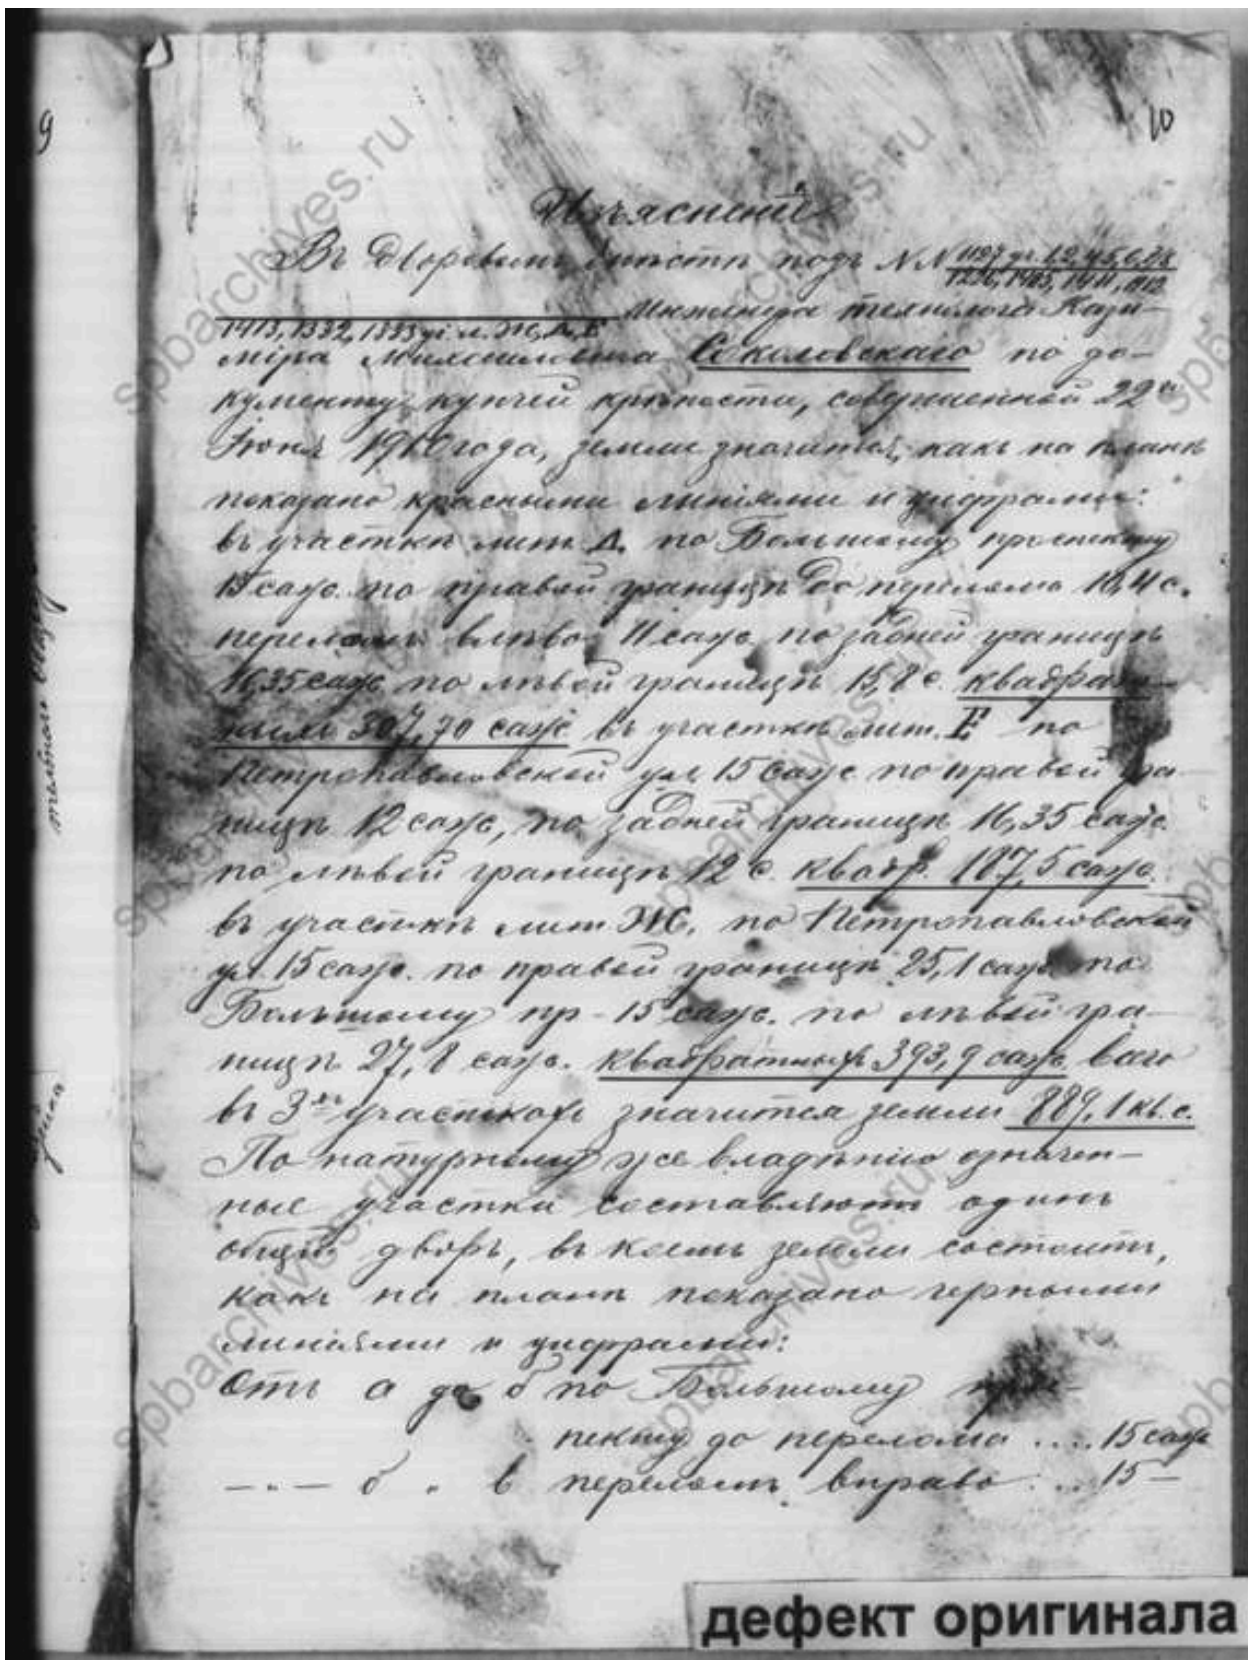 9
10
Изъясненiе
Въ Дворовомъ мѣстѣ подъ NN
1226, 1403, 1411, 1412
1413, 1332, 1333 л. Ж, Д, Е Инженера технолога Кази-
мiра Михайловича Соколовскаго по до-
кументу купчей крѣпости, совершенной 22го
Iюня 1910 года, земли значится, какъ на планѣ
показано красными линiями и цифрами:
въ участкѣ лит. Д. по Большому проспекту
15 саж. по правой границѣ до перелома 10,4 с.
переломъ влѣво 11 саж. по задней границѣ
16,35 саж. по лѣвой границѣ 15,8 с. квадрат-
ныхъ 307,70 саж. въ участкѣ лит. Е по
Петропавловской ул. 15 саж. по правой гра-
ницѣ 12 саж., по задней границѣ 16,35 саж.
по лѣвой границѣ 12 с. квадр. 187,5 саж.
въ участкѣ лит Ж. по Петропавловской
ул. 15 саж. по правой границѣ 25,1 саж. по
Большому пр- 15 саж. по лѣвой гра-
ницѣ 27,8 саж. квадратныхъ 393,9 саж. всего
въ 3хъ участкахъ значится земли 889,1 кв. с.
По натурному же владѣнiю означен-
ные участки составляютъ одинъ
общiй дворъ, въ коемъ земли состоитъ,
какъ на планѣ показано черными
линiями и цифрами:
Отъ а до б по Большому прос-
пекту до перелома .... 15 саж
—„— б „ в переломъ вправо ... 15 —
дефект оригинала
spbarchives.ru